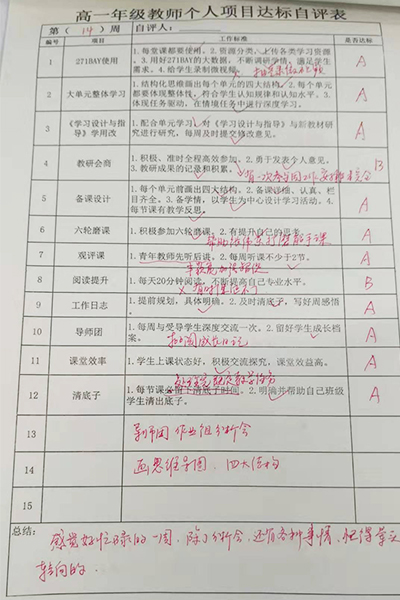 高一年级教师个人项目达标自评表
第（14）周 自评人：
编号 项目 工作标准 是否达标
1 271BAY使用 1.每堂课都要使用。2.资源分类，上传各类学习资源。3.用好271BAY的大数据，不断调研学情，满足学生需求。4.给学生录制微视频。 A
2 大单元整体学习 1.结构化思维画出每个单元的四大结构。2.每个单元都要体现整体性，符合学生认知规律和认知水平。3.体现任务驱动，在情境任务中进行深度学习。 A
3 《学习设计与指导》学用改 1.配合单元学习，对《学习设计与指导》与新教材研究进行研究，每周及时提交修改意见。 A
4 教研会商 1.积极、准时全程高效参加。2.勇于发表个人意见。3.教研成果的记录和积累。 B
有一次
5 备课设计 1.每个单元前画出四大结构。2.备课详细、认真、栏目齐全。3.备学情，以学生为中心设计学习活动。4.每节课有教学反思。 A
6 六轮磨课 1.积极参加六轮磨课。2.有提升自己的思考。 A
7 观评课 1.青年教师先听后讲。2.每周听课不少于2节。 A
8 阅读提升 1.每天20分钟阅读，不断提高自己专业水平。 B
9 工作日志 1.提前规划，具体明确。2.及时清底子，写好周感悟。 A
10 导师团 1.每周与受导学生深度交流一次。2.留好学生成长档案。 A
11 课堂效率 1.学生上课状态好，积极交流探究，课堂效益高。 A
12 清底子 1.每节课必留下清底子时间。2.明确并帮助自己班级学生清出底子。 A
13 导师团 作业组分析会
14 画思维导图，四大结构
15
总结：感觉好忙碌的一周，除了分析会，还有各种事情，忙得
转向的。